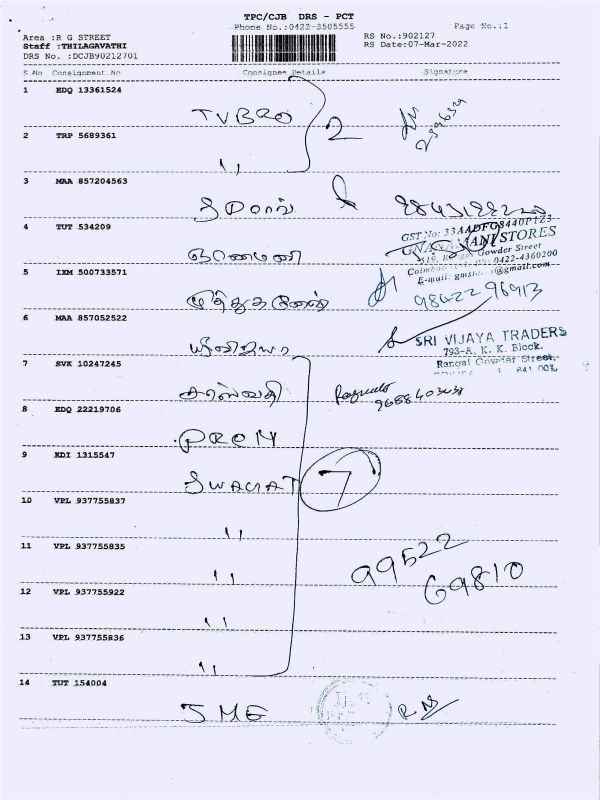 TPC/CJB DRS - PCT
Phone No.:0422-3505555 Page No.:1
Area :R G STREET RS No.:902127
Staff :THILAGAVATHI RS Date:07-Mar-2022
DRS No. :DCJB90212701
S.No Consignment No Consignee Details Signature
1 EDQ 13361524
TVBRO 2
2 TRP 5689361
,,
3 MAA 857204563
4 TUT 534209
GST No: 33AADFG8440P1Z3
GNANAMANI STORES
ஞானமணி 519, Rangai Gowder Street
0422-4360200
5 IXM 500733571
E-mail: @gmail.com
98422 96913
6 MAA 857052522
SRI VIJAYA TRADERS
793-A, K. K. Block,
Rangai Gowder Street,
7 SVK 10247245
சரஸ்வதி
8 EDQ 22219706
PRON
9 KDI 1315547
SWAGAT 7
10 VPL 937755837
,,
11 VPL 937755835
,, 99522
69810
12 VPL 937755922
,,
13 VPL 937755836
,,
14 TUT 154004
SME